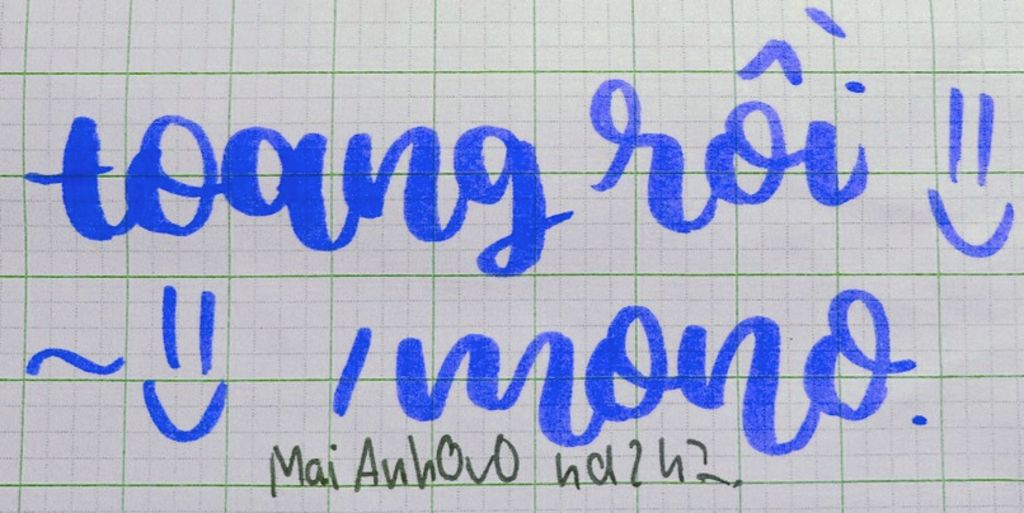 toang rồi =)
~ =) /mono.
MaiAnhOvO